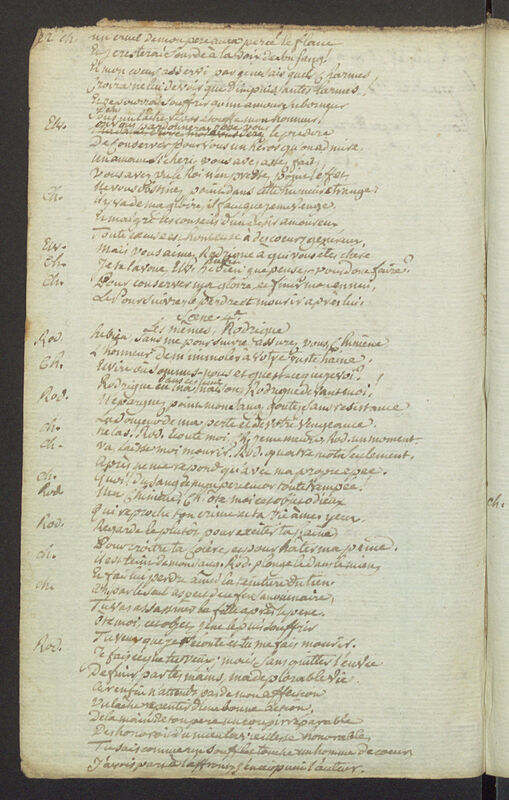 un cruel de mon pere aura percé le flanc
Et je resterai sourde à la voix de son sang!
Et mon coeur asservi par
charmes
Croira ne lui devoir que d'impuissantes larmes
Et je pourrai souffrir qu'un amour suborneur
Dans un lâche
mon honneur.
Elv.
pardonnerai
vous
le prendre
De conserver pour vous un héros qu'on admire
un amant si cheri, vous avez assez fait,
Vous avez vu le Roi n'en pressez point l'effet
Ne vous obstinez point dans cette humeur etrange;
Ch.
Il y va de ma gloire, il faut que je me venge.
Et malgré les conseils d'un desir amoureux
Toute excuse est honteuse à des coeurs genereux.
Elv.
Mais vous aimez Rodrigue à qui vous etes chere
Ch.
Je te l'avoue. Elv.
que pensez-vous donc faire?
Ch.
Pour conserver ma gloire et finir mon ennui,
Le Poursuivre, le perdre et mourir après lui.
Scene 4e
Les mêmes, Rodrigue
Rod.
hé bien, sans me poursuivre assurez vous, Chimene
L'honneur de m'immoler à votre juste haine!
Ch.
Elvire où sommes-nous et qu'est-ce que je voi!
Rodrigue en ma maison, Rodrigue devant moi!
Rod.
N'epargnez point mon sang goutez sans resistance
La Douceur de ma perte et de votre vengeance
Ch.
helas. Rod. Ecoute moi, Ch. je me meurs Rod. un moment
Ch.
Va, laisse moi mourir. Rod. quatre mots seulement.
Après ne me repond qu'avec ma propre epée.
Ch.
Quoi! Du sang de mon pere encor toute trempée.
Rod.
Mon Chimene, Ch. Ote moi cet objet odieux
Qui reproche ton crime et ta vie à mes yeux.
Rod.
Regarde le plutôt pour exciter ta haine
Pour croitre ta colere, et pour hater ma peine.
Ch.
Il est teint de mon sang. Rod. plonge le dans le mien,
Et fais lui perdre ainsi la teinture du tien.
Ch.
Tu vas assassiner la fille après le pere.
Ote moi cet objet, je ne le puis souffrir
Tu veux que je t'écoute et tu me fais mourir.
Rod.
Je fais ce que tu veux; mais sans quitter l'envie
De finir par tes mains, ma deplorable vie
Car enfin n'attends pas de mon affection
Un lâche repentir d'une bonne action,
De la main de ton pere un coup irréparable
Deshonoroit du mien la vieillesse honorable,
Tu sais comme un soufflet touche un homme de coeur
J'avois part à l'affront, j'en ai puni l'auteur.
ch.